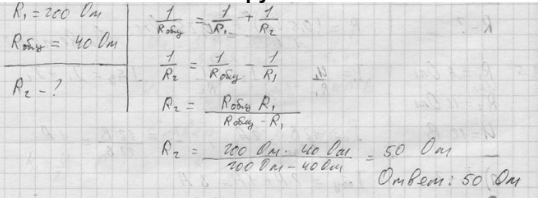 R₁ = 200 Ом
Rобщ = 40 Ом
R₂ - ?
1/Rобщ = 1/R₁ + 1/R₂
1/R₂ = 1/Rобщ - 1/R₁
R₂ = Rобщ R₁ / Rобщ - R₁
R₂ = 200 Ом · 40 Ом / 200 Ом - 40 Ом = 50 Ом
Ответ: 50 Ом